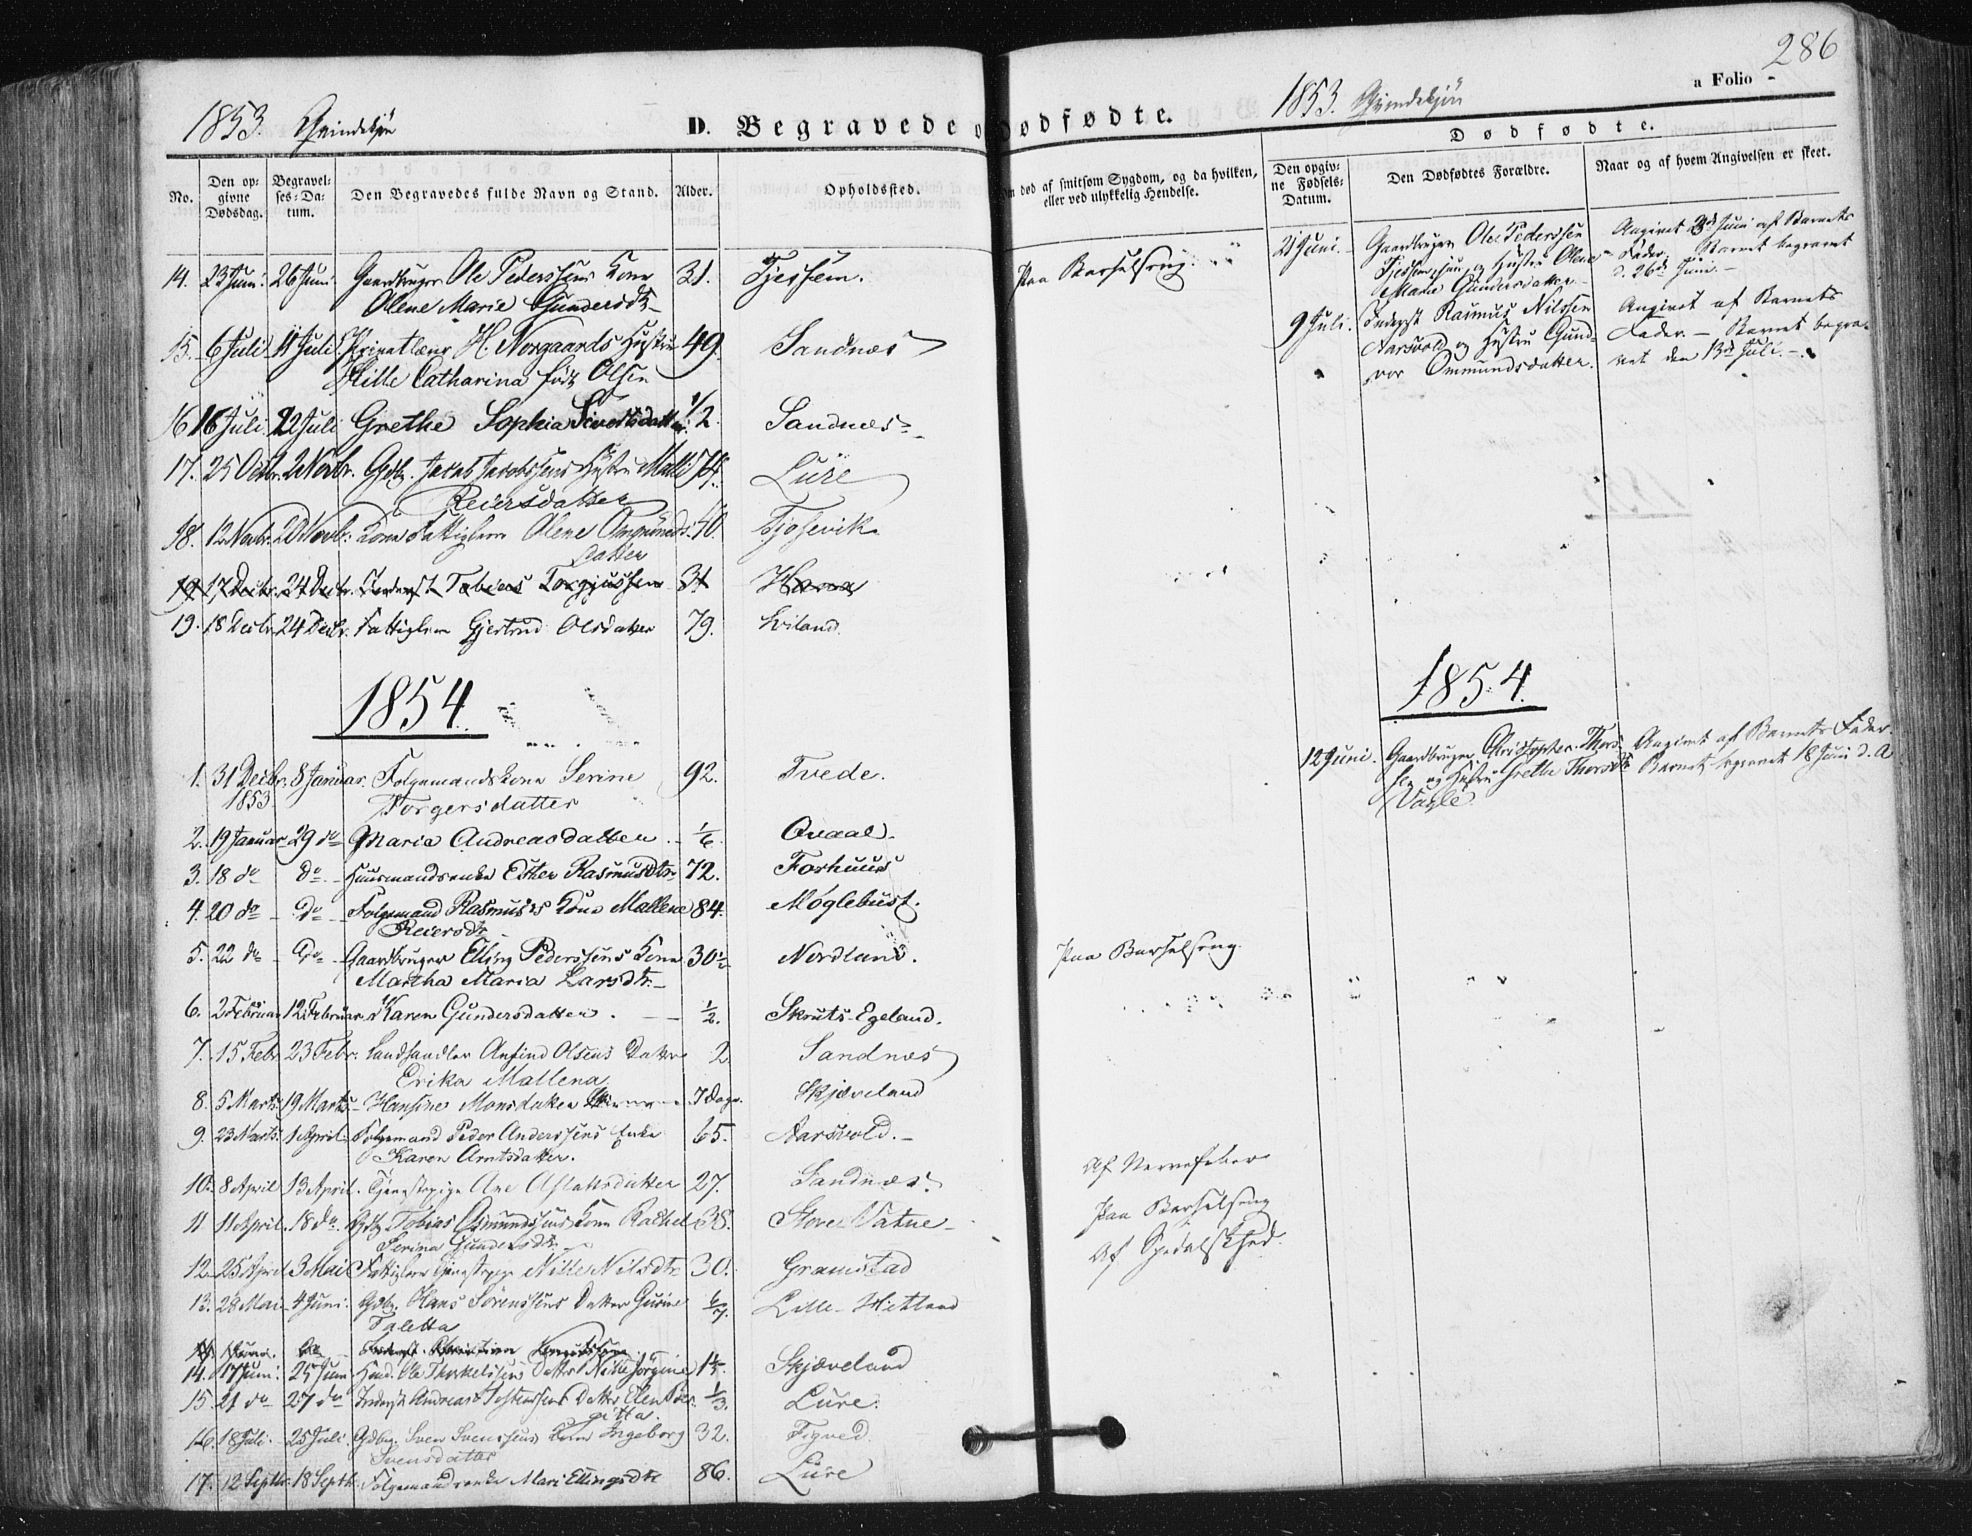 286
1853. Qvindekjön
D. Begravede o
dødfødte.
1853. Qvindekjön
a Folio
Dødfødte.
No.
Den opgivne Dødsdag.
Begravelses-Datum.
Den Begravedes fulde Navn og Stand.
Alder.
Opholdssted.
om død af smitsom Sygdom, og da hvilken, eller ved ulykkelig Hendelse.
Den opgivne Fødsels-Datum.
Den Dødfødtes Forældre.
Naar og af hvem Angivelsen er skeet.
14. 23 Juni. 26 Juni. Gaardbruger Ole Pederssens Kone 31. Tjessem. Paa Barselseng.
Olene Marie Gundersdtr
21 Juni. Gaardbruger Ole Pederssen
Tjessem og Hustru Olene
Marie Gundersdatter
Angivet Juni af Barnets
Fader. Barnet begravet
d. 26d Juni.
15. 6 Juli 11 Juli H. Norgaards Hustru 49. Sandnæs
Catharina født Olsen
9 Juli. Inderst Rasmus Nilssen
Aarsvold og Hustru Gund-
vor Ommundsdatter.
Angivet af Barnets
Fader. - Barnet begra-
vet den 13d Juli.
16 16 Juli 22 Juli Grethe Sophia Sivertsdatter 1/2. Sandnæs
17. 25 Octbr. 2 Novbr. Gdbr. Jacob Jacobssens Hustru Malli 74. Lure
Reiersdatter
18. 12 Novbr. 20 Novbr. Kone Fattiglem Olene Omunds- 40. Tjosevik
datter
19 17 Decbr. 24 Decbr. Inderst Tobias Torgjussen 31 Hana
19. 18 Decbr. 24 Decbr. Fattiglem Gjertrud Olsdatter 79. Lviland
1854.
1854.
1. 31 Decbr. 8 Januar. Folgemandskone Serine 92. Tvede.
1853 Torgersdatter
12 Juni. Gaardbruger Christopher Thors-
sen og Hustru Grethe Thorsdtr
Vagle
Angivet af Barnets Fader.
Barnet begravet 18 Juni d. A
2. 19 Januar 29 do Maria Andreasdatter 1/6 Qvaal.
3. 18 do do Huusmandsenke Esther Rasmusdtr 72. Forhuus
4. 20 do do Folgemand Rasmus's Kone Mallene 84. Møglebust.
Reiersdtr
5. 22 do do Gaardbruger Elling Pederssens Kone 30 1/2 Nordland. Paa Barselseng.
Martha Maria Larsdtr
6. 2 Februar 12 Februar Karen Gundersdatter 1/2. Skruts-Egeland.
7. 15 Febr. 23 Febr. Landhandler Anfind Olsens Datter 2 Sandnæs
Erika Mallena
8. 5 Marts 19 Marts Hansine Monsdatter 7 Dage. Skjæveland
9. 23 Marts 1 April Folgemand Peder Anderssens Enke 65. Aarsvold.
Karen Arntsdatter.
10. 8 April 13 April. Tjenestepige Ane Aslaksdatter 27. Sandnæs. Af Nervefeber
11 11 April. 18 do. Gdbr Tobias Osmundssens Kone Rachel 38. Store Vatne Paa Barselseng
Serina Gundersdtr
12. 25 April 3 Mai Fattiglem Tjenestepige Nille Nilsdtr 30. Gramstad Af Spedalskhed.
13. 28 Mai 4 Juni. Gdbr. Hans Sörenssens Datter Gurine 6/7. Lille-Hetland
Taletta
14. Juni. do Inderst Christian
14. 17 Juni. 25 Juni Huusmd. Ole Thorkelssens Datter Nille Jörgine 1 1/5. Skjæveland
15. 21 do 27 do Inderst Andreas Tostenssens Datter Elen Bir- 1/3. Lure.
gitta.
16. 18 Juli. 25 Juli. Gdbr. Sven Svenssens Kone Ingeborg 32. Figved.
Svensdatter
17. 12 Septbr. 18 Septbr. Folgemandsenke Mari Ellingsdtr 86. Lure